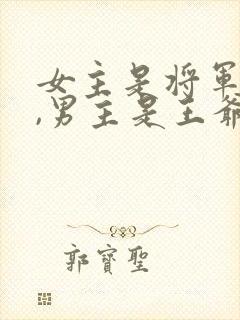 女主是将军
,男主是王爷
郭寶聖